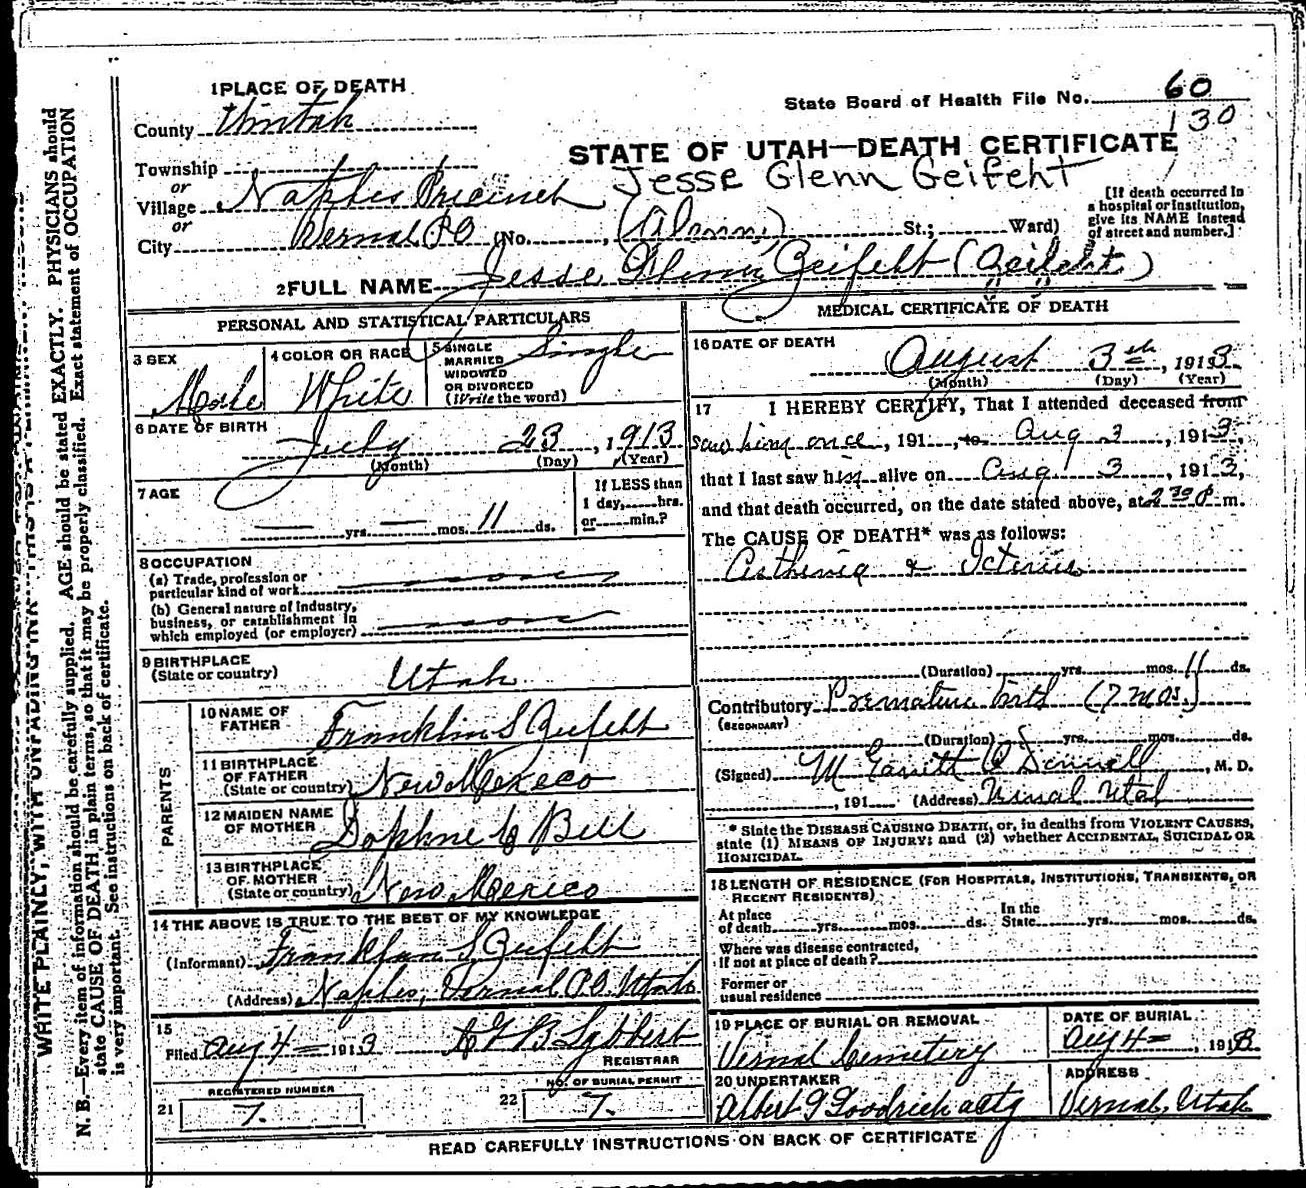 1 PLACE OF DEATH
State Board of Health File No. 60
130
County Uintah
STATE OF UTAH—DEATH CERTIFICATE
Township
or
Village Naples Precinct
or
City Vernal PO (No. , St.; Ward)
Jesse Glenn Geifeht
(Glenn)
[If death occurred in
a hospital or institution,
give its NAME instead
of street and number.]
2 FULL NAME Jesse Glenn Geifeht (Geifeht)
PERSONAL AND STATISTICAL PARTICULARS
3 SEX
Male
4 COLOR OR RACE
White
5 SINGLE
MARRIED
WIDOWED
OR DIVORCED
(Write the word)
Single
6 DATE OF BIRTH
July 23, 1913
(Month) (Day) (Year)
7 AGE
— yrs. — mos. 11 ds.
If LESS than
1 day, hrs.
or min.?
8 OCCUPATION
(a) Trade, profession or
particular kind of work
(b) General nature of Industry,
business, or establishment in
which employed (or employer)
9 BIRTHPLACE
(State or country)
Utah
PARENTS
10 NAME OF
FATHER
Franklin S Geifeht
11 BIRTHPLACE
OF FATHER
(State or country)
New Mexico
12 MAIDEN NAME
OF MOTHER
Daphne C Bell
13 BIRTHPLACE
OF MOTHER
(State or country)
New Mexico
14 THE ABOVE IS TRUE TO THE BEST OF MY KNOWLEDGE
(Informant) Franklin S Geifeht
(Address) Naples, Vernal P.O. Utah
15
Filed Aug 4 — 1913
REGISTRAR
REGISTERED NUMBER
21 7.
NO. OF BURIAL PERMIT
22 7.
MEDICAL CERTIFICATE OF DEATH
16 DATE OF DEATH
August 3th, 1913
(Month) (Day) (Year)
17 I HEREBY CERTIFY, That I attended deceased from
saw him once, 191 , to Aug 3, 1913,
that I last saw him alive on Aug 3, 1913,
and that death occurred, on the date stated above, at 2 30 P m.
The CAUSE OF DEATH* was as follows:
Asthenia & Icterus
(Duration) yrs. mos. 11 ds.
Contributory Premature birth (7 mos.)
(SECONDARY)
(Duration) yrs. mos. ds.
(Signed) M. D.
, 191 (Address) Vernal Utah
* State the DISEASE CAUSING DEATH, or, in deaths from VIOLENT CAUSES,
state (1) MEANS OF INJURY; and (2) whether ACCIDENTAL, SUICIDAL OR
HOMICIDAL.
18 LENGTH OF RESIDENCE (FOR HOSPITALS, INSTITUTIONS, TRANSIENTS, OR
RECENT RESIDENTS)
At place
of death yrs. mos. ds.
In the
State yrs. mos. ds.
Where was disease contracted,
If not at place of death?
Former or
usual residence
19 PLACE OF BURIAL OR REMOVAL
Vernal Cemetery
DATE OF BURIAL
Aug 4 —, 1913
20 UNDERTAKER
Albert G Goodrich actg
ADDRESS
Vernal, Utah
READ CAREFULLY INSTRUCTIONS ON BACK OF CERTIFICATE
N. B.—Every item of information should be carefully supplied. AGE should be stated EXACTLY. PHYSICIANS should
state CAUSE OF DEATH in plain terms, so that it may be properly classified. Exact statement of OCCUPATION
is very important. See instructions on back of certificate.
WRITE PLAINLY, WITH UNFADING INK—THIS IS A PERMANENT RECORD